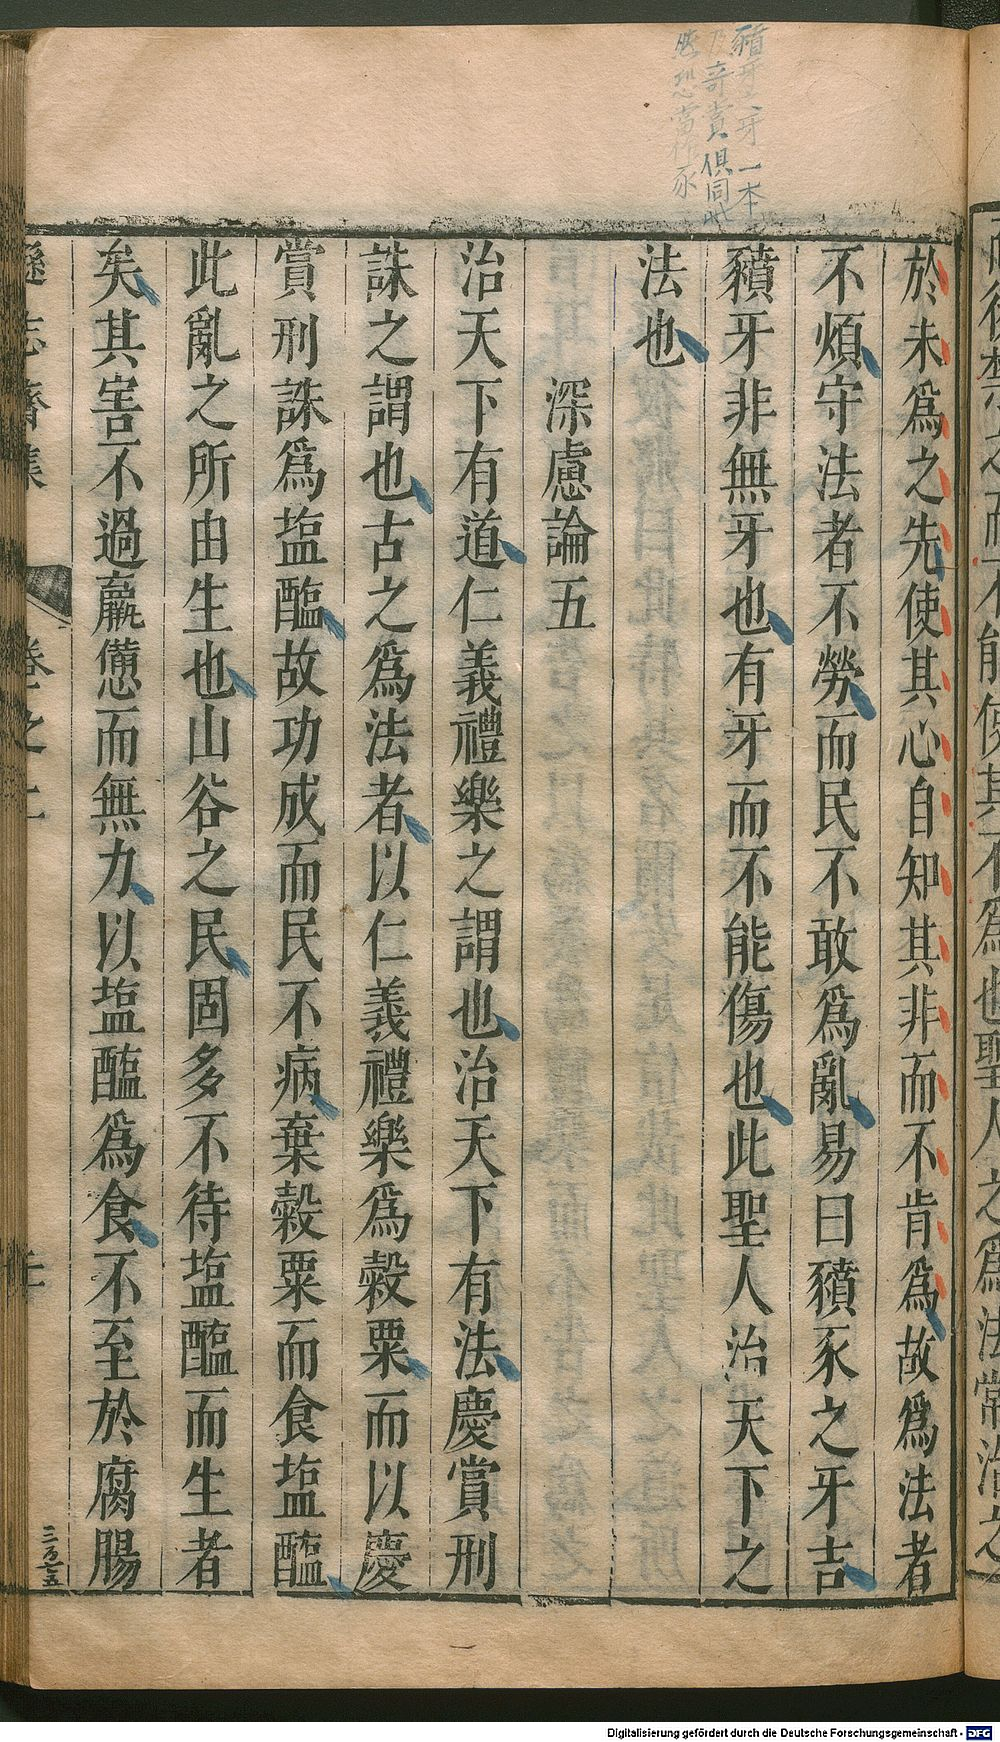 豶牙之牙一本
及奇賞俱同此
恐當作豕
於未爲之先使其心自知其非而不肯爲故爲法者
不煩守法者不勞而民不敢爲亂易曰豶豕之牙吉
豶牙非無牙也有牙而不能傷也此聖人治天下之
法也
深慮論五
治天下有道仁義禮樂之謂也治天下有法慶賞刑
誅之謂也古之爲法者以仁義禮樂爲穀粟而以慶
賞刑誅爲塩醢故功成而民不病棄穀粟而食塩醢
此亂之所由生也山谷之民固多不待塩醢而生者
矣其害不過羸憊而無力以塩醢爲食不至於腐腸
遜志齋集
卷之二
Digitalisierung gefördert durch die Deutsche Forschungsgemeinschaft - DFG